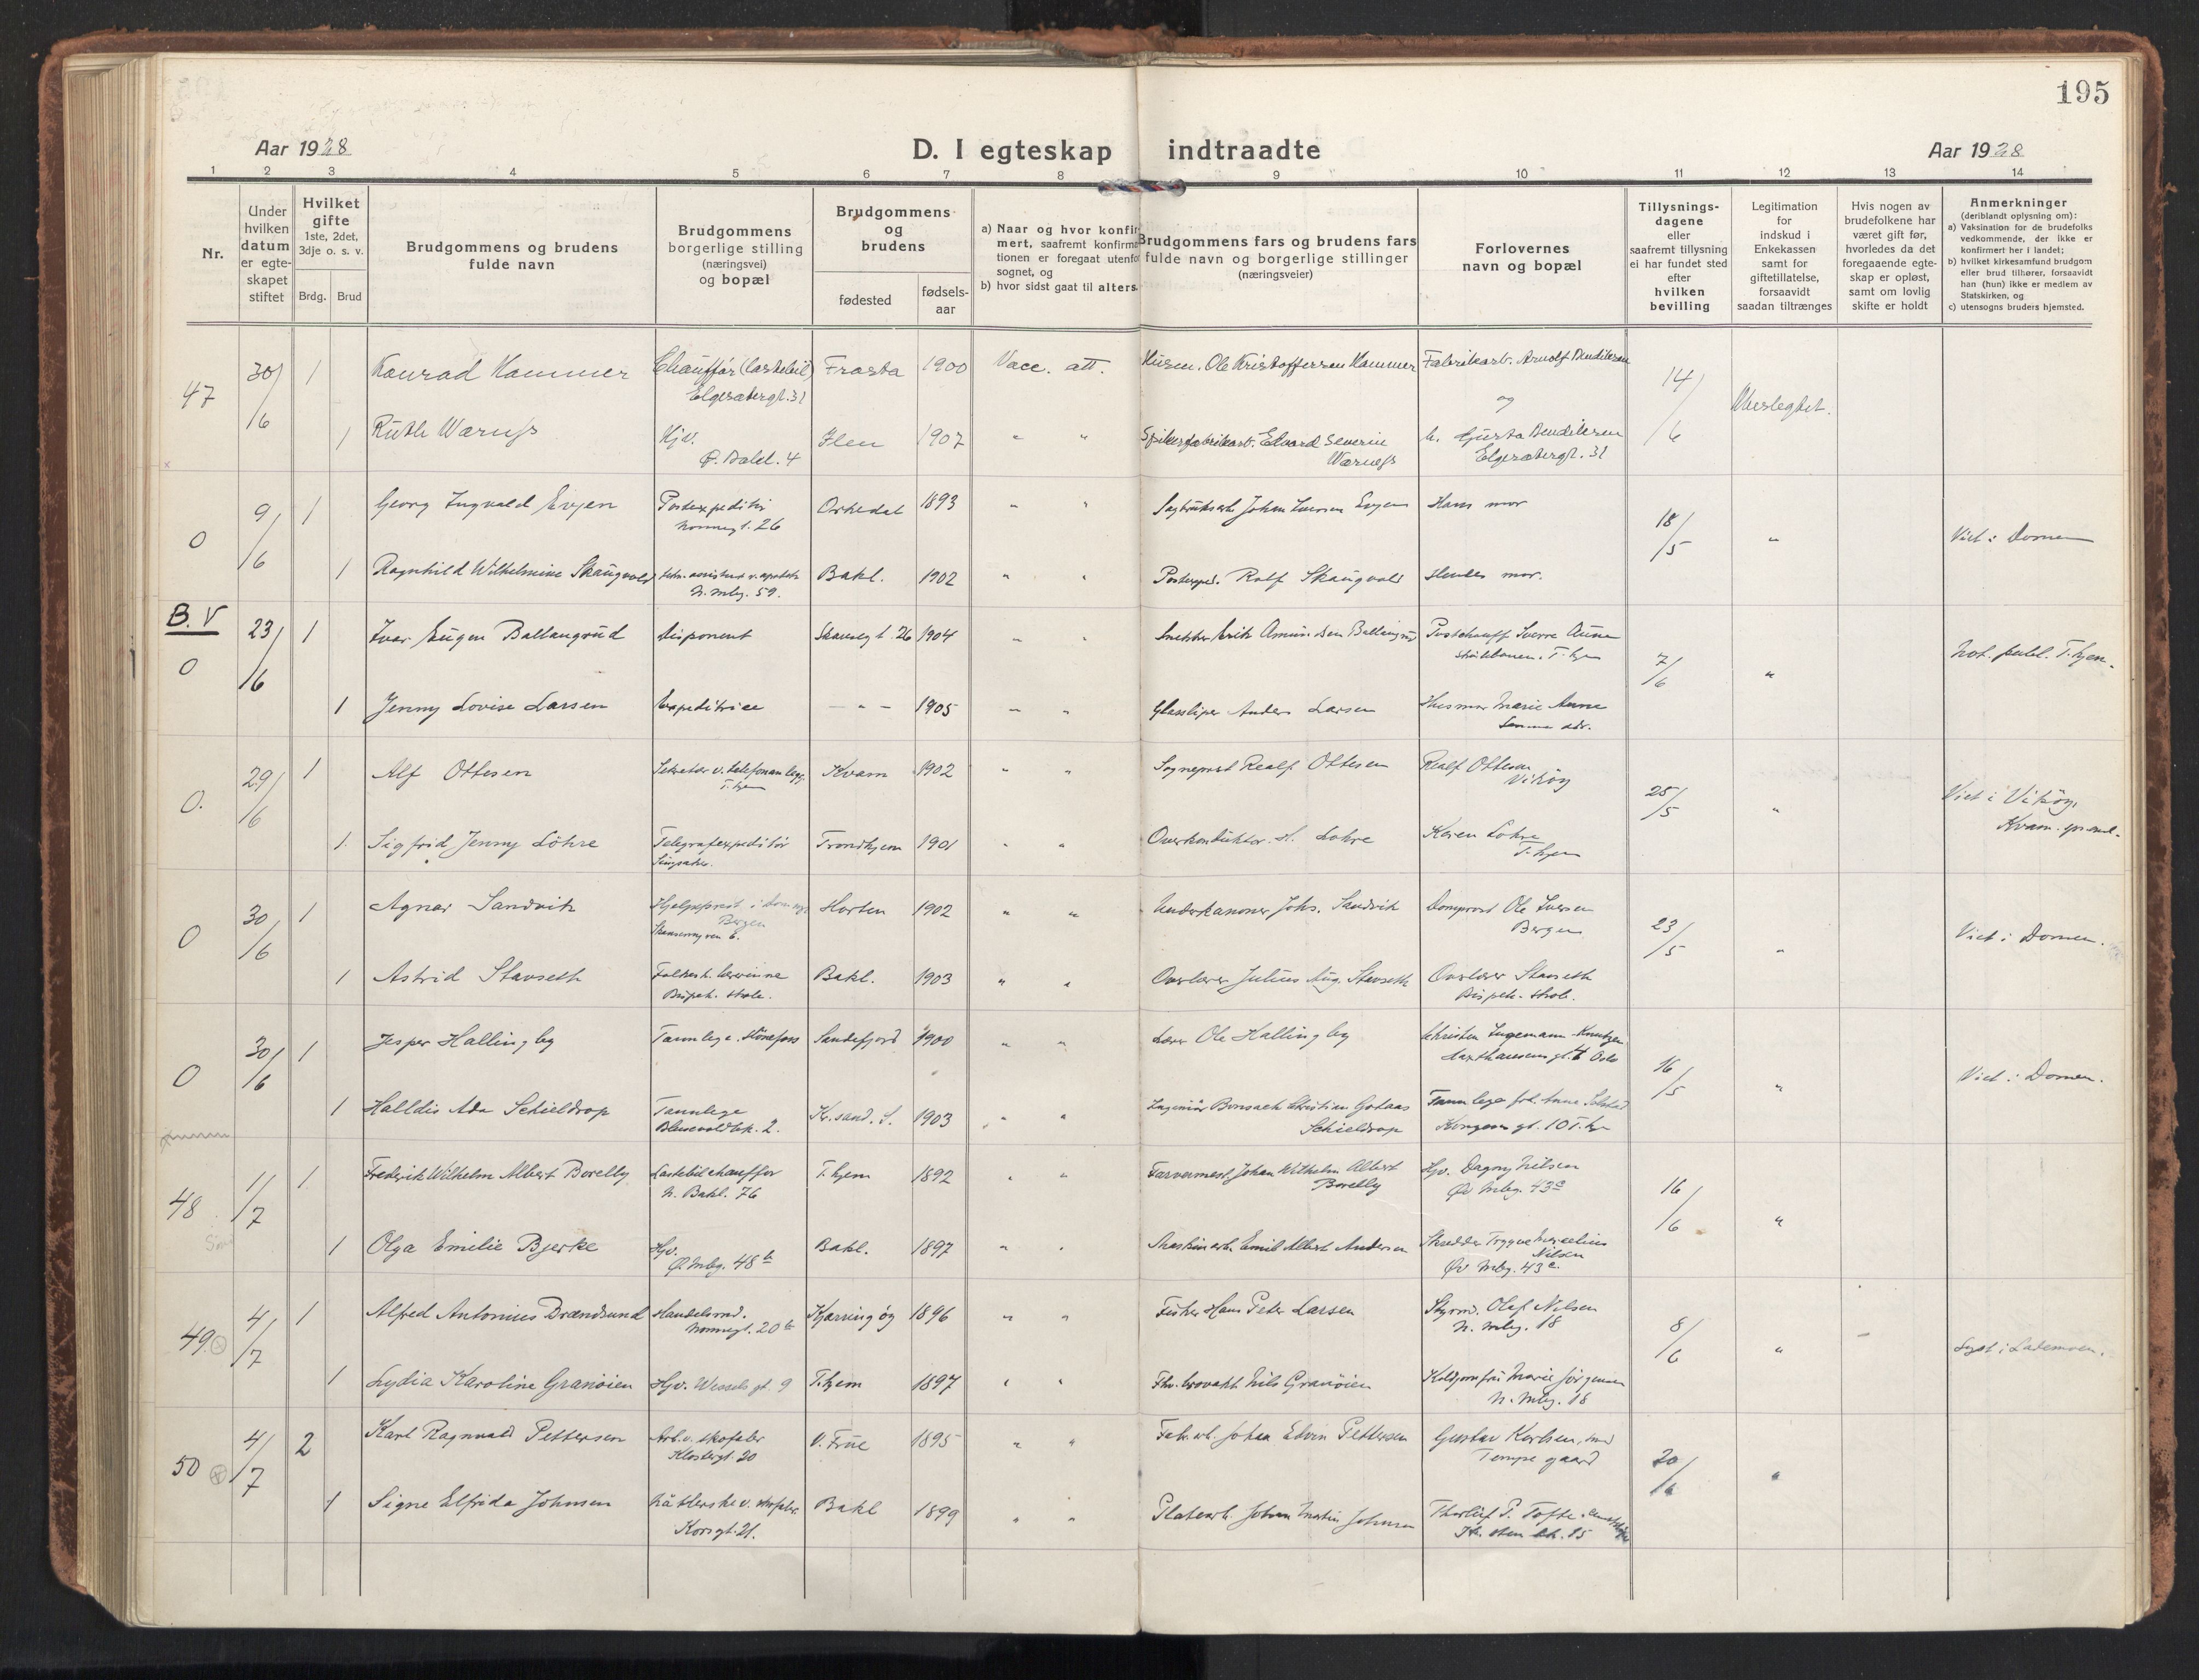 195
Aar 1928
D. I egteskap indtraadte
Aar 1928
1 2 3 4 5 6 7 8 9 10 11 12 13 14
Nr.
Under
hvilken
datum
er egte-
skapet
stiftet
Hvilket
gifte
1ste, 2det,
3dje o. s. v.
Brdg. Brud
Brudgommens og brudens
fulde navn
Brudgommens
borgerlige stilling
(næringsvei)
og bopæl
Brudgommens
og
brudens
fødested
fødsels-
aar
a) Naar og hvor konfir
mert, saafremt konfirma
tionen er foregaat utenfo
sognet, og
b) hvor sidst gaat til alters.
Brudgommens fars og brudens fars
fulde navn og borgerlige stillinger
(næringsveier)
Forlovernes
navn og bopæl
Tillysnings-
dagene
eller
saafremt tillysning
ei har fundet sted
efter
hvilken
bevilling
Legitimation
for
indskud i
Enkekassen
samt for
giftetillatelse,
forsaavidt
saadan tiltrænges
Hvis nogen av
brudefolkene har
været gift før,
hvorledes da det
foregaaende egte-
skap er opløst,
samt om lovlig
skifte er holdt
Anmerkninger
(deriblandt oplysning om):
a) Vaksination for de brudefolks
vedkommende, der ikke er
konfirmert her i landet;
b) hvilket kirkesamfund brudgom
eller brud tilhører, forsaavidt
han (hun) ikke er medlem av
Statskirken, og
c) utensogns bruders hjemsted.
47 30/6 1 Konrad Hammer Chauffør (lastebil) Frosta 1900 Vacc. att. Ole Kristoffersen Hammer Fabrikarb. Arnolf Bendiksen 14/6
Elgesætergt. 31 og
1 Ruth Warness Hjv. Ilen 1907 " " Spikerfabrikarb. Edvard Severin Bendiksen
Ø. Bakl. 4 Warness Elgesætergt. 31
0 9/6 1 Georg Ingvald Evjen Postexpeditør Orkedal 1893 " " Sagbruksarb. Johan Iversen Evjen Hans mor 18/5 " Viet i Domen
Nonnegt. 26
1 Ragnhild Wilhelmine Skaugvold Bakl. 1902 " " Postexped. Rolf Skaugvold Hendes mor.
N. Mbg. 59.
B. V
0 23/6 1 Ivar Eugen Ballangrud Disponent Skansegt. 26 1904 " " Snekker Erik Amundsen Ballangrud Postchauff Sverre Aune 7/6 " Not. publ. T.hjem.
T.hjem
1 Jenny Lovise Larsen Expeditrice - " - 1905 " " Glassliper Anders Larsen Husmor Marie Aune
Samme adr.
0. 29/6 1 Alf Ottesen Sekretær v. telefonanlegg. Kvam 1902 " " Sogneprest Realf Ottesen Realf Ottesen 25/5 " Viet i Vikøy,
T.hjem Vikøy
1 Sigfrid Jenny Löhre Telegrafexpeditör Trondhjem 1901 " " Overkonduktör H. Lohre Karen Lohre
Singsaker. T.hjem
0 30/6 1 Agnar Sandvik Hjelpeprest i Horten 1902 " " Underkanoner Johs. Sandvik Domprost Ole Iversen 23/5 " Viet i Domen.
Bergen Bergen
6.
1 Astrid Stavseth Folkesk. lærerinne Bakl. 1903 " " Overlærer Julius Aug. Stavseth Overlærer Stavseth
Bispeh. skole. Bispeh. skole.
0 30/6 1 Jesper Hallingby Tannlege. Hönefoss Sandefjord 1900 " " Lærer Ole Hallingby Christen Ingemann Knutzen 16/5 " Viet i Domen.
Oslo
1 Halldis Ada Schieldrop Tannlege Kr.sand. S. 1903 " " Ingeniör Bonsach Christian Gotaas Tannlege frk. Anne
2. Schieldrop Kongens gt. 10 T.hjem
48 1/7 1 Frederik Wilhelm Albert Borelly Lastebilchauffør T.hjem 1892 " " Farvermest. Johan Wilhelm Albert Hjv. Dagny Nilsen 16/6 "
N. Bakl. 76 Borelly Øv Mbg. 43c
1 Olga Emilie Bjerke Hjv. Bakl. 1897 " " Maskinarb. Emil Albert Andersen Skredder Trygve
Ø. Mbg. 48b Nilsen
Øv Mbg. 43c.
49. 4/7 1 Alfred Antonius Brændsund Handelsmd. Kjerringøy 1896 " " Fisker Hans Peter Larsen Styrm. Olaf Nilsen 8/6 " Lyst i Lademoen.
Nonnegt. 20b N. Mbg. 18
1 Lydia Karoline Granöien Hjv. Wessels gt. 9 T.hjem 1897 " " Nils Granöien Marie Jörgensen
N. Mbg. 18
50 4/7 2 Karl Ragnvald Pettersen Arb. v. skofabr V. Frue 1895 " " Fabr.arb. Johan Edvin Pettersen Gustav Karlsen, smed 20/6 "
Klostergt. 20 Tempe gaard
1 Signe Elfrida Johnsen Nåtlerske v. skofabr. Bakl 1899 " " Platearb. Johan Martin Johnsen Thorleif P. Tofte
Korsgt. 21. 15